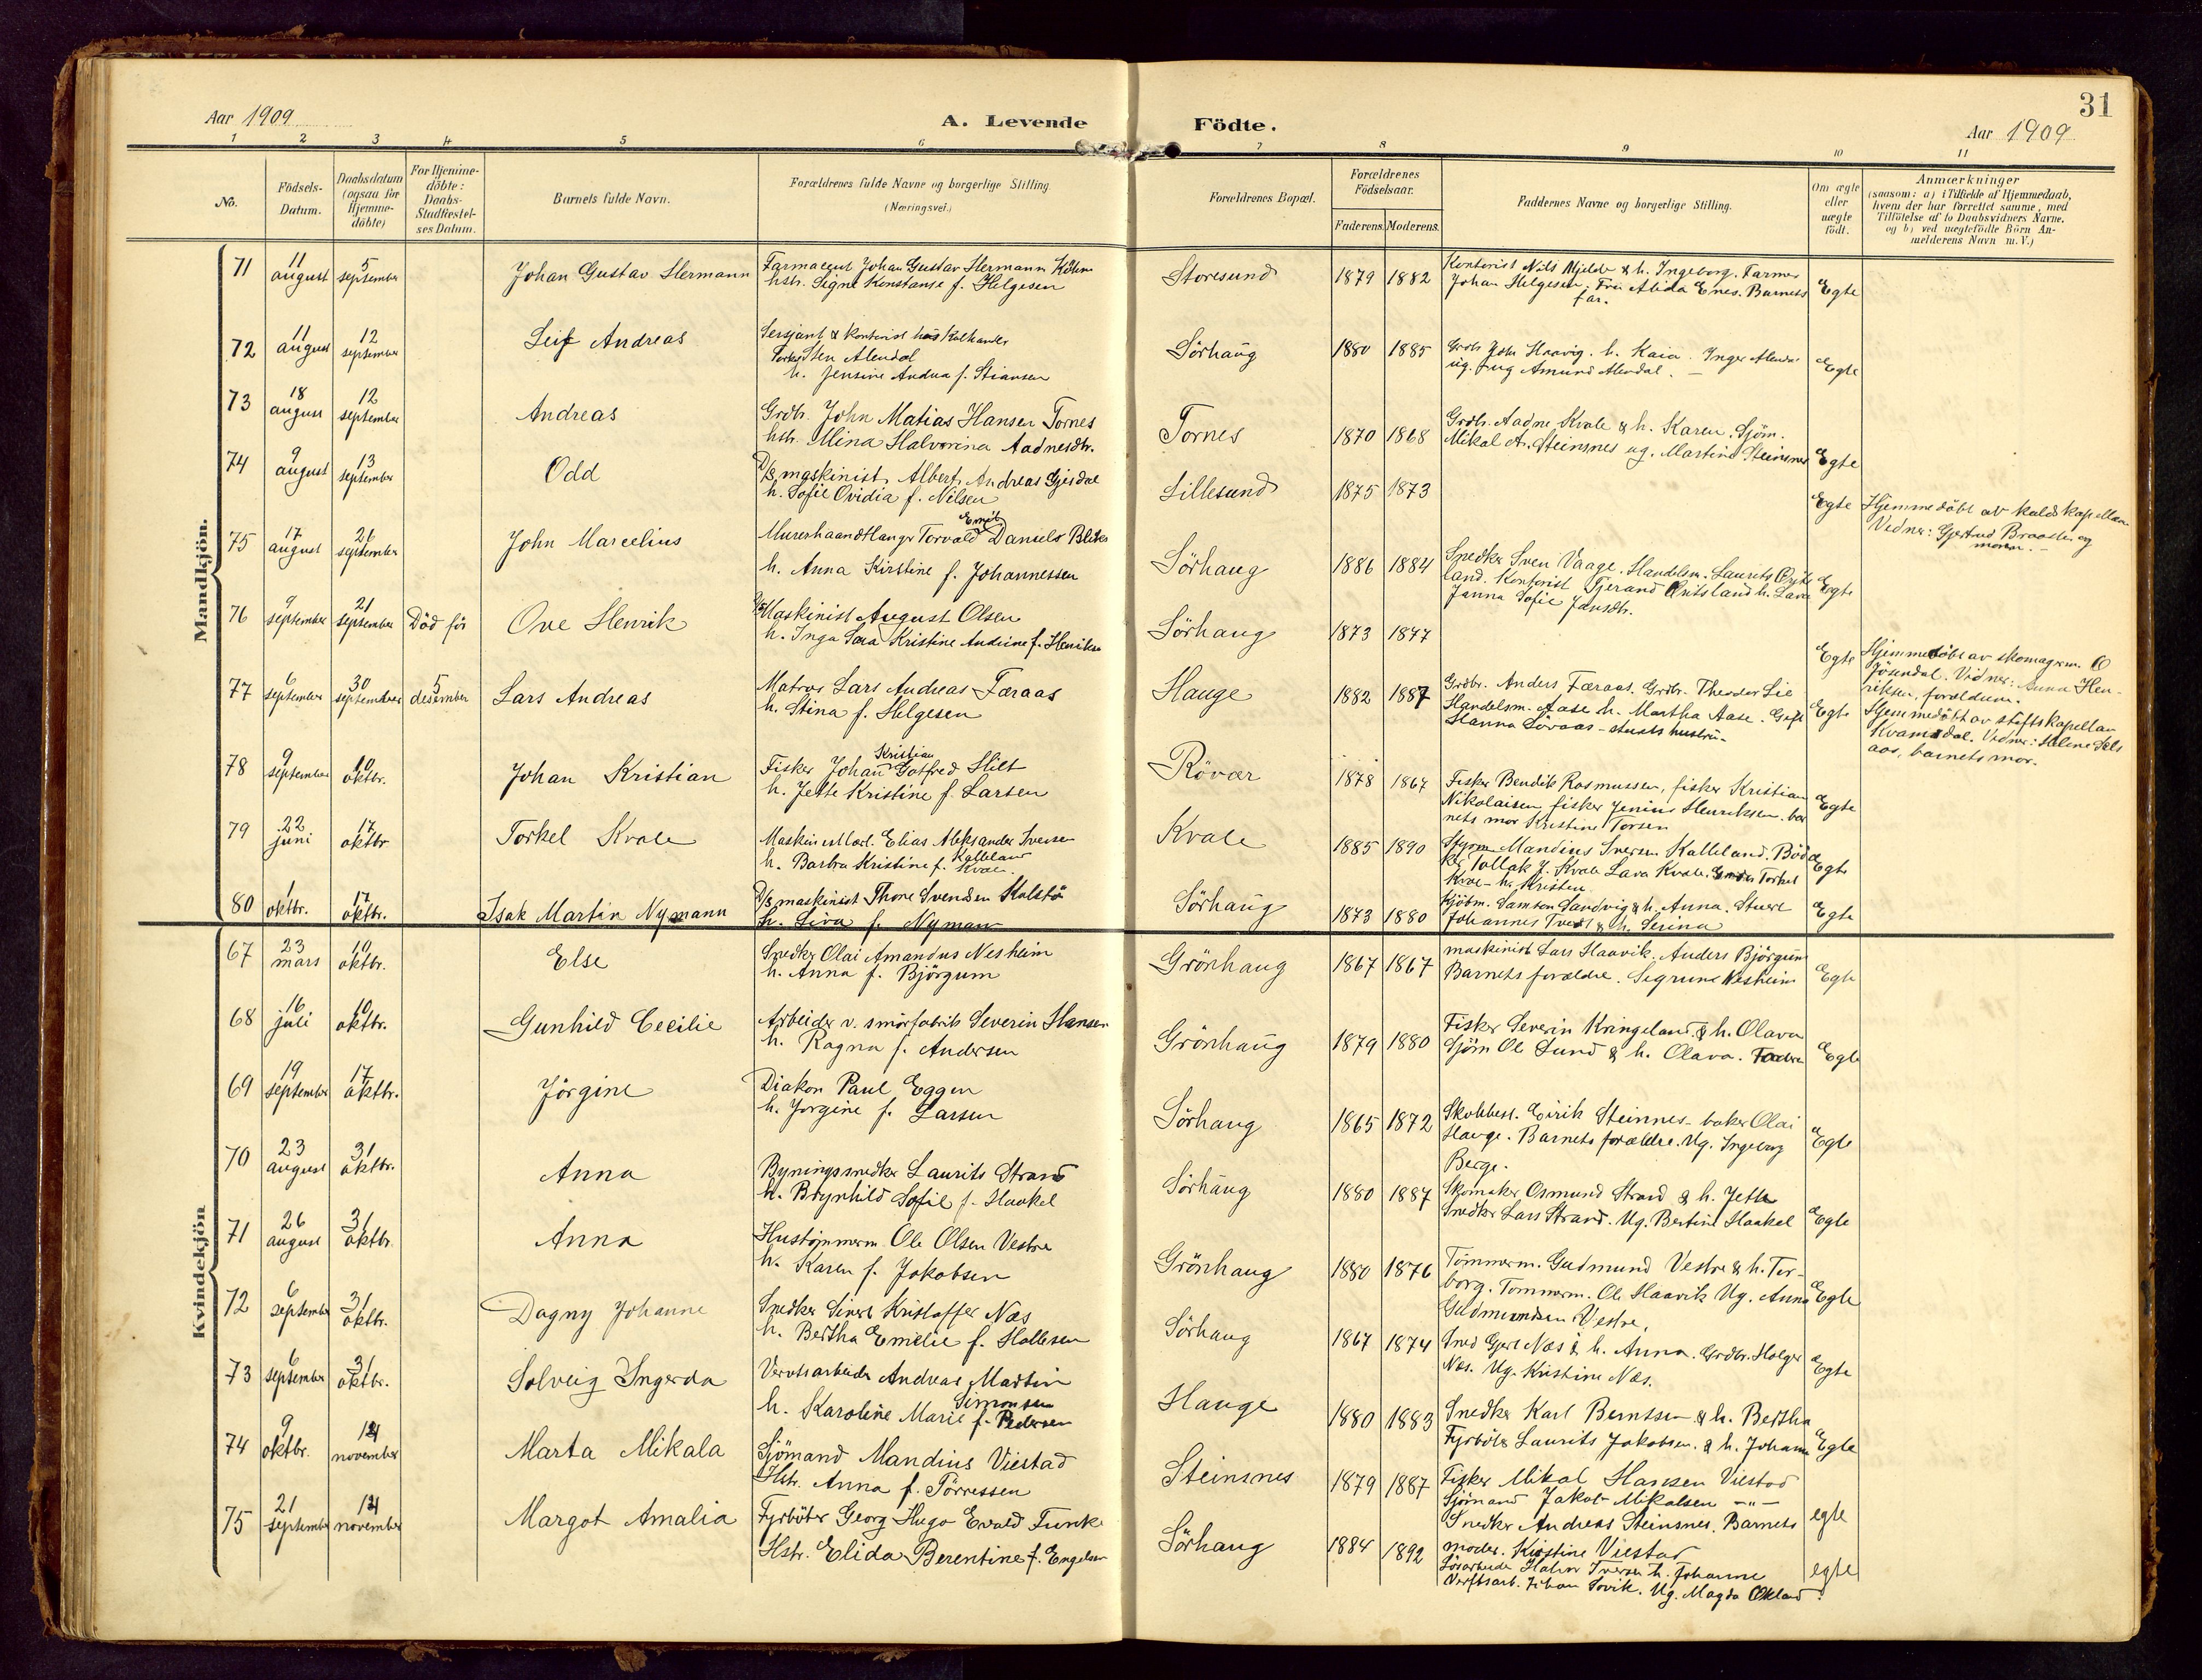 Aar 1909
A. Levende Födte.
31
Aar 1909
1 2 3 4 5 6 7 8 9 10 11
No.
Födsels-Datum.
Daabsdatum (ogsaa for Hjemme-döbte)
For Hjemme-döbte: Daabs-Stadfæstel-ses Datum.
Barnets fulde Navn.
Forældrenes fulde Navne og borgerlige Stilling
(Næringsvei.)
Forældrenes Bopæl.
Forældrenes Födselsaar.
Faderens. Moderens.
Faddernes Navne og borgerlige Stilling.
Om ægte eller uægte födt.
Anmærkninger
(saasom: a) i Tilfælde af Hjemmedaab,
hvem der har forrettet samme, med
Tilföielse af to Daabsvidners Navne,
og b) ved uægtefödte Börn An-
melderens Navn m. V.)
Mandkjön.
71 11 august 5 september Johan Gustav Hermann
Farmaceut Johan Gustav Hermann Köhn
hstr. Signe Konstanse f. Helgesen
Storesund 1879 1882
Kontorist Nils Mjelde & h. Ingeborg. Farmer
Johan Helgesen. Fru Alida Enes. Barnets
far.
Egte
72 11 august 12 september Leif Andreas
Sersjant & kontorist hos
Sten Alendal
h. Jensine Andrea f. Stiansen
Sörhaug 1880 1885
Haavig. h. Kaia. Inger
ug. Amund Alendal.
Egte
73 18 august 12 september Andreas
Grdbr. John Matias Hansen Tornes
hstr. Mina Halvorina Aadnesdtr.
Tornes 1870 1868
Grdbr. Aadne Kvale & h. Karen. Sjöm.
Mikal A. Steinsnes ug. Martine Steinsnes
Egte
74 9 august 13 september Odd
D/s maskinist Albert Andreas Gjesdal
h. Sofie Ovidia f. Nilsen
Lillesund 1875 1873
Egte
Hjemmedöbt av kaldskapellan
Vedner: Gjertrud Braadli og
moren.
75 17 august 26 september John Marcelius
Murerhaandtlanger Torvald Emil Daniels
h. Anna Kirstine f. Johannessen
Sörhaug 1886 1884
Snedker Sven Vaage. Handelsm. Laurits
land. Kontorist Tjerand h. Lava
Janna Sofie Jansdtr.
Egte
76 9 september 21 september Död för Ove Henrik
D/s Maskinist August Olsen
h. Inga Sara Kristine Andrine f. Henriksen
Sörhaug 1873 1877
Egte
Hjemmedöbt av skomagerm. O
Jösendal. Vidner: Anna Hen-
riksen, forældrene.
77 6 september 30 september 5 desember Lars Andreas
Matros Lars Andreas Færaas
h. Stina f. Helgesen
Hauge 1882 1887
Grdbr. Anders Færaas. Grdbr. Theodor Lie
Handelsm. Aase h. Martha Aase. Gift
Hanna Löraas - stuerts hustru -
Egte
Hjemmedöbt av stiftskapellan
Kvamsdal. Vedner: Helene
aas, barnets mor.
78 9 september 10 oktbr. Johan Kristian
Fisker Johan Kristian Gotfred Hilt
h. Jette Kristine f. Larsen
Rövær 1878 1867
Fisker Bendik Rasmussen, fisker Kristian
Nikolaisen, fisker Jenius Henriksen. bar
nets mor Kristine Torsen
Egte
79 22 juni 17 oktbr Torkel Kvale
Maskinistlærl. Elias Aleksander Iversen
h. Barbra Kristine f. Kalleland Kvale.
Kvale 1885 1890
Styrm Mandius Iversen Kalleland. Böd
ker Tollak J. Kvale Lava Kvale. Torkel
h. Kristen
Egte
80 1 oktbr. 17 oktbr. Isak Martin Nymann
D/s maskinist Thore Svendsen Kalstö
h. Siva f. Nyman
Sörhaug 1873 1880
Samson Sandvig & h. Anna. Stuert
Johannes Tvedt & h. Serina
Egte
Kvindekjön
67 23 mars 10 oktbr. Else
Snedker Olai Amandus Nesheim
h. Anna f. Björgum
Grönhaug 1867 1867
maskinist Lars Haavik. Anders Björgum
Barnets forældre. Sigrune Nesheim
Egte
68 16 juli 10 oktbr. Gunhild Cecilie
Arbeider v. smörfabrik Severin Hansen
h. Ragna f. Andersen
Grönhaug 1879 1880
Fisker Severin Kringeland & h. Olava
Sjöm Ole Lund & h. Olava.
Egte
69 19 september 17 oktbr. Jörgine
Diakon Paul Eggen
h. Jorgine f. Larsen
Sörhaug 1865 1872
Skobbest. Eirik Steinnes - baker Olai
Hauge. Barnets forældre. Ug. Ingeborg
Berge.
Egte
70 23 august 31 oktbr. Anna
Bygningssnedker Laurits Strand
h. Brynhild Sofie f. Haakel
Sörhaug 1880 1887
Skomaker Osmund Strand & h. Jette
Snedker Lars Strand. Ug. Bertine Haakel
Egte
71 26 august 31 oktbr Anna
Hustömmerm. Ole Olsen Vestre
h. Karen f. Jakobsen
Grönhaug 1880 1876
Tömmerm. Gudmund Vestre & h. Tor-
borg. Tommerm. Ole Haavik Ug. Anna
Gudmundsen Vestre.
Egte
72 6 september 31 oktbr. Dagny Johanne
Snedker Sivert Kristoffer Næs
h. Bertha Emelie f. Hollesen
Sörhaug 1867 1874
Sned Gjert Næs & h. Anna. Grdbr. Holger
Næs. Ug. Kristine Næs.
Egte
73 6 september 31 oktbr. Solveig Ingerda
Verftsarbeider Andreas Martin Simonsen
h. Karoline Marie f. Pedersen
Hauge 1880 1883
Snedker Karl Berntsen & h. Bertha
Fyrböter Laurits Jakobsen. & h. Johanne
Egte
74 9 oktbr. 14 november Marta Mikala
Sjömand Mandius Viestad
Hstr. Anna f. Törressen
Steinsnes 1879 1887
Fisker Mikal Hansen Viestad
Sjömand Jakob Mikalsen -"-
Snedker Andreas Steinsnes. Barnets
moder. Kristine Viestad
egte
75 21 september 14 november Margot Amalia
Fyrböter Georg Hugo Ewald Funke
Hstr. Elida Berentine f. Engelsen
Sörhaug 1884 1892
Iversen h. Johanne
Verftsarb. Johan Sovik. Ug. Magda Økland.
egte